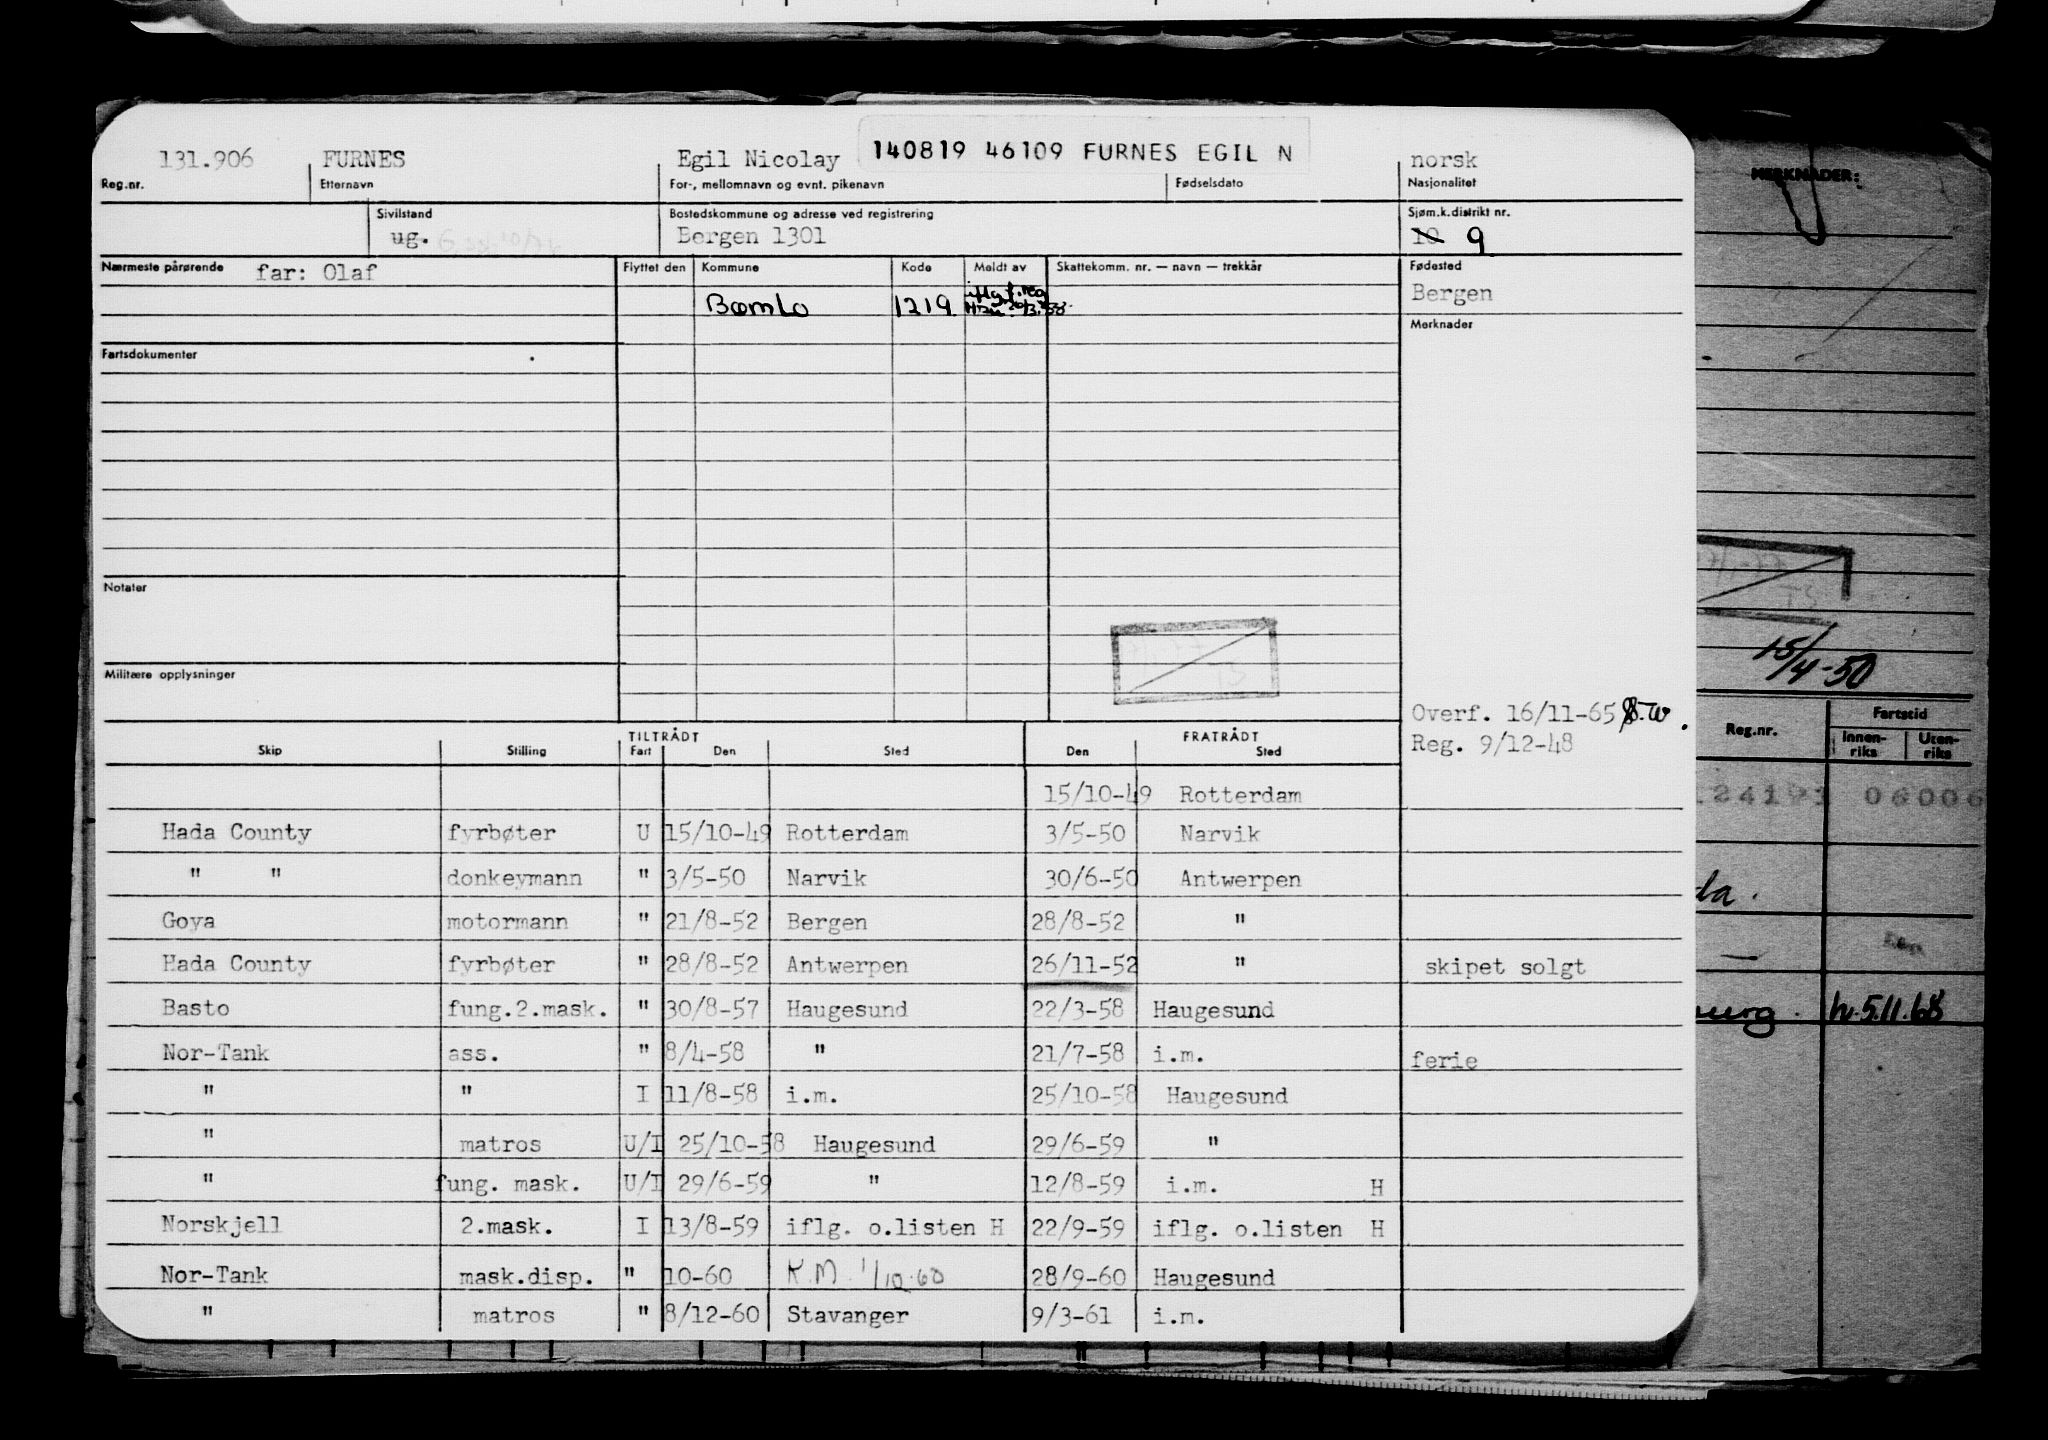 131.906 FURNES Egil Nicolay 140819 46109 FURNES EGIL N norsk
Reg.nr. Etternavn For-, mellomnavn og evnt. pikenavn Fødselsdato Nasjonalitet
Sivilstand Bostedskommune og adresse ved registrering Sjøm.k.distrikt nr.
ug. Bergen 1301 10 9
Nærmeste pårørende far: Olaf Flyttet den Kommune Kode Meldt av Skattekomm. nr. — navn — trekkår Fødested
Bømlo 1219 iflg f.reg Bergen
Merknader
Fartsdokumenter
Notater
Militære opplysninger
Overf. 16/11-65
Reg. 9/12-48
TILTRÅDT FRATRÅDT
Skip Stilling Fart Den Sted Den Sted
15/10-49 Rotterdam
Hada County fyrbøter U 15/10-49 Rotterdam 3/5-50 Narvik
" " donkeymann " 3/5-50 Narvik 30/6-50 Antwerpen
Goya motormann " 21/8-52 Bergen 28/8-52 "
Hada County fyrbøter " 28/8-52 Antwerpen 26/11-52 " skipet solgt
Basto fung.2.mask. " 30/8-57 Haugesund 22/3-58 Haugesund
Nor-Tank ass. " 8/4-58 " 21/7-58 i.m. ferie
" " I 11/8-58 i.m. 25/10-58 Haugesund
" matros U/I 25/10-58 Haugesund 29/6-59 "
" fung. mask. U/I 29/6-59 " 12/8-59 i.m. H
Norskjell 2.mask. I 13/8-59 iflg. o.listen H 22/9-59 iflg. o.listen H
Nor-Tank mask.disp. " 10-60 K.M. 1/10-60 28/9-60 Haugesund
" matros " 8/12-60 Stavanger 9/3-61 i.m.
MERKNADER:
15/4-50
Reg.nr. Fartstid
Innen-riks Uten-riks
06006
h.5.11.68